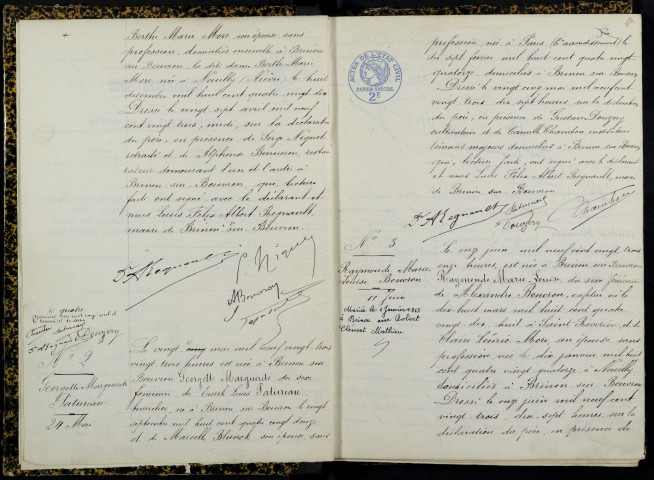 Berthe Marie More son épouse, sans
profession, domiciliés ensemble à Brinon
sur Beuvron, la dite dame Berthe Marie
More née à Neuilly (Nièvre) le huit
décembre mil huit cent quatre vingt dix
Dressé le vingt sept avril mil neuf
cent vingt trois, midi, sur la déclaration
du père, en présence de
retraité et de Alphonse
demeurant l'un et l'autre à
Brinon sur Beuvron, qui, lecture
faite ont signé avec le déclarant et
nous Louis Félix Albert Regnault,
maire de Brinon sur Beuvron.
Dr A Regnault
N° 2
Georgette Marguerite
Patureau
24 Mai
Le vingt mai mil neuf cent vingt trois
vingt trois heures est née à Brinon sur
Beuvron Georgette Marguerite du sexe
féminin de Emile Louis Patureau
né à Brinon sur Beuvron le vingt
septembre mil huit cent quatre vingt douze
et de Marcelle Blanck son épouse, sans
ACTES DE L'ÉTAT CIVIL
PAPIER SPÉCIAL
2F
profession, née à Paris (6e arrondissement) le
dix sept février mil huit cent quatre vingt
quatorze, domiciliés à Brinon sur Beuvron
Dressé le vingt cinq mai mil neuf cent
vingt trois dix sept heures, sur la déclaration
du père, en présence de Gustave Dougny
cultivateur et de Camille Chambon
témoins majeurs domiciliés à Brinon sur Beuvron
qui, lecture faite, ont signé avec le déclarant
et nous Louis Félix Albert Regnault, maire
de Brinon sur Beuvron
Dr A Regnault
Patureau
Dougny
Chambon
N° 3
Raymonde Marie
Louise Bouvron
11 Juin
Mariée le
à Brinon avec Robert
Clément Mathieu
Le onze juin mil neuf cent vingt trois
onze heures, est née à Brinon sur Beuvron
Raymonde Marie Louise du sexe féminin
de Alexandre né le
dix huit mars mil huit cent quatre
vingt dix huit à Saint Révérien et de
Claire More, son épouse, sans
profession née le dix janvier mil huit
cent quatre vingt quatorze à Neuilly
domiciliés à Brinon sur Beuvron
Dressé le onze juin mil neuf cent
vingt trois, dix sept heures, sur la
déclaration du père, en présence de